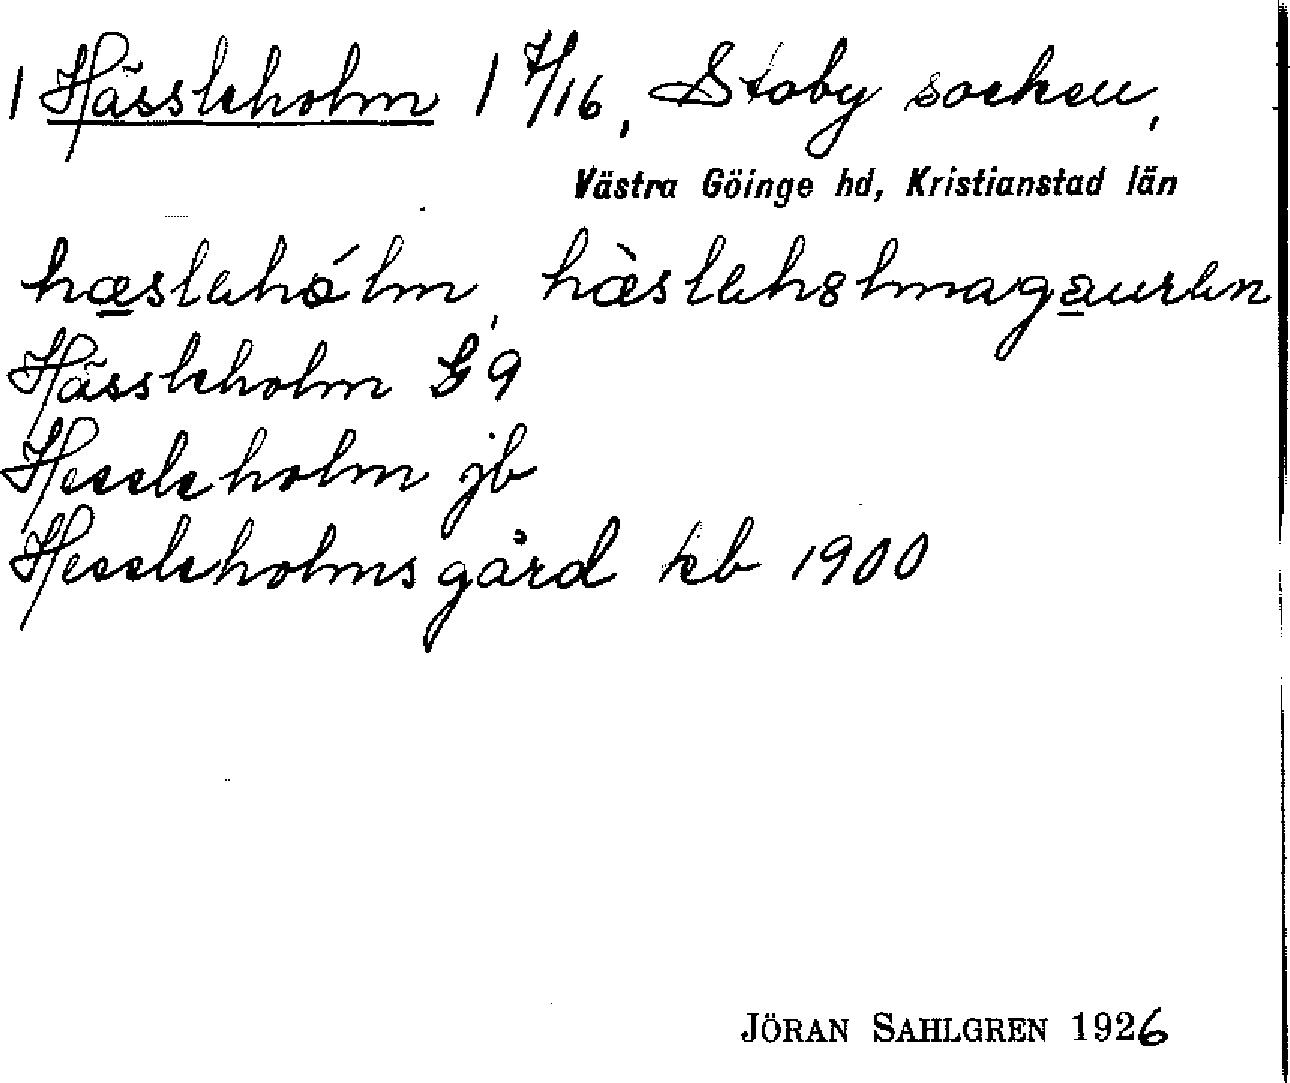 1 Hässleholm 1 7/16, Stoby socken,
Västra Göinge hd, Kristianstad län
hæslehólm, hæ̀sleholmagaurən
Hässleholm G 9
Hessleholm jb
Hessleholmsgård kb 1900
JÖRAN SAHLGREN 1926